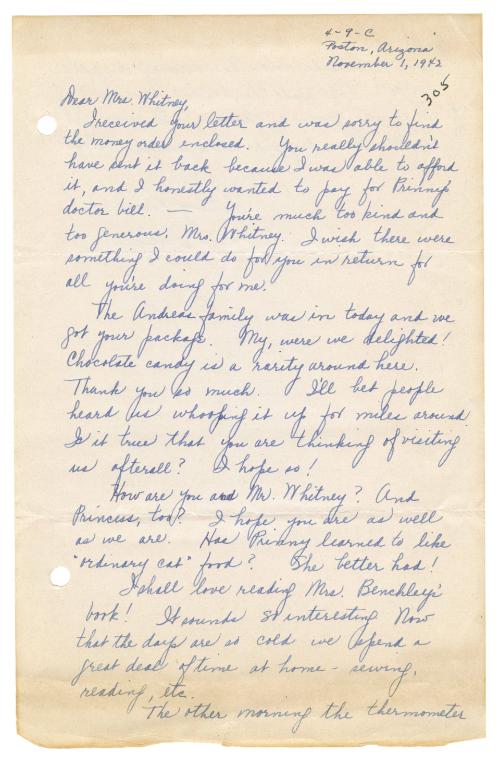 4-9-C
Poston, Arizona
November 1, 1942
305
Dear Mrs. Whitney,
I received your letter and was sorry to find
the money order enclosed. You really shouldn't
have sent it back because I was able to afford
it, and I honestly wanted to pay for Prinny's
doctor bill. — You're much too kind and
too generous, Mrs. Whitney. I wish there were
something I could do for you in return for
all you're doing for me.
The Andreas family was in today and we
got your package. My, were we delighted!
Chocolate candy is a rarity around here.
Thank you so much. I'll bet people
heard us whooping it up for miles around.
Is it true that you are thinking of visiting
us afterall? I hope so!
How are you and Mr. Whitney? And
Princess, too? I hope you are as well
as we are. Has Prinny learned to like
"ordinary cat" food? She better had!
I shall love reading Mrs. Benchley's
book! It sounds so interesting. Now
that the days are so cold we spend a
great deal of time at home - sewing,
reading, etc.
The other morning the thermometer